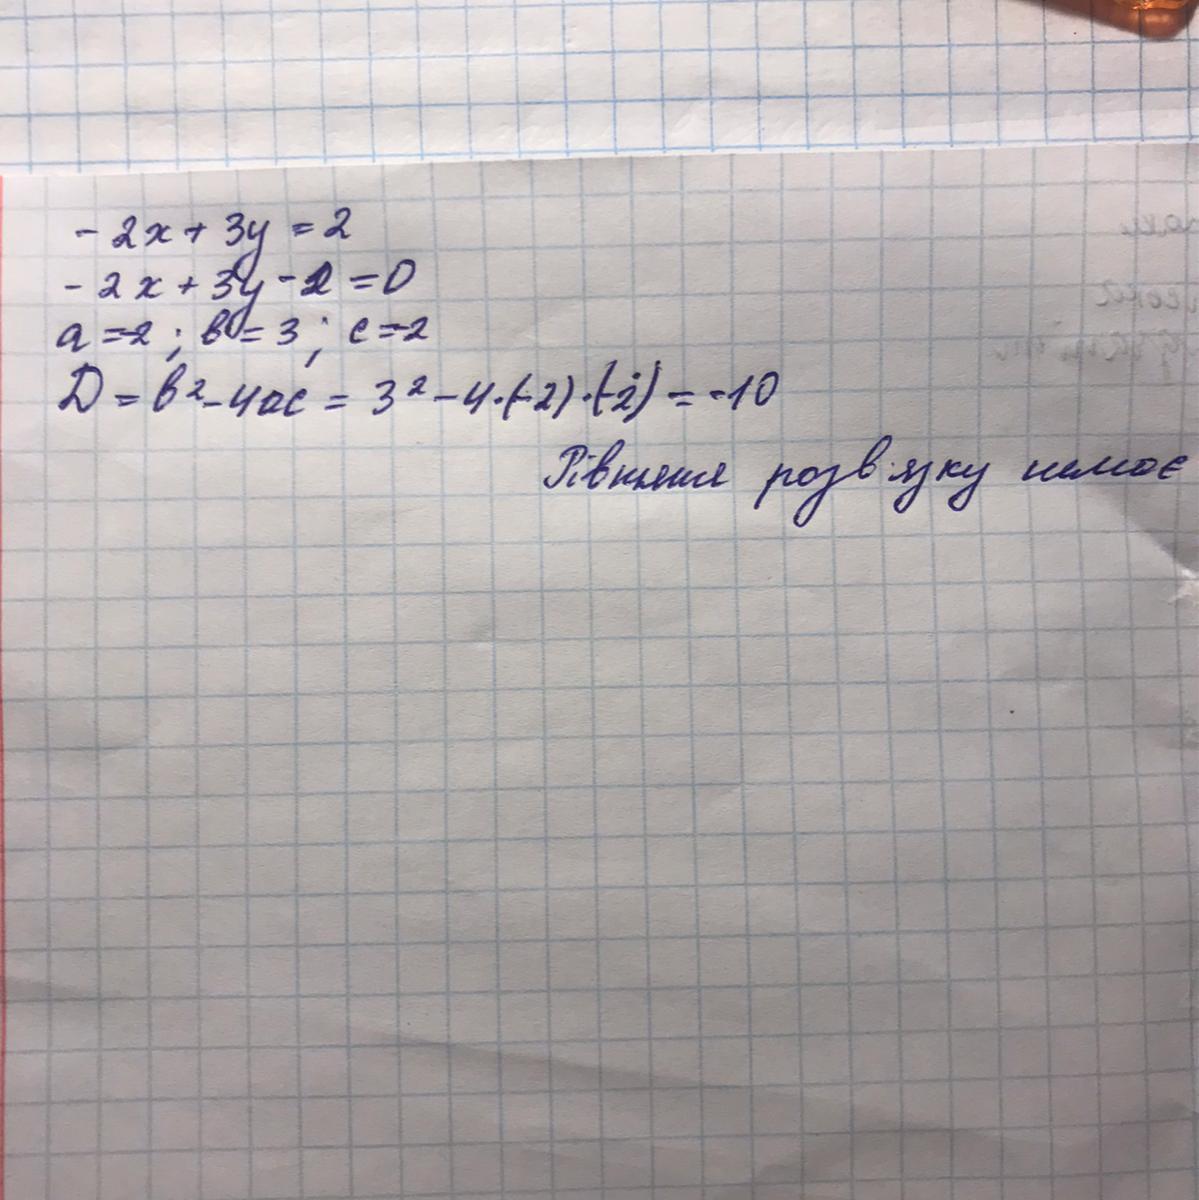 - 2x + 3y = 2
- 2x + 3y - 2 = 0
a = -2 ; в = 3 ; c = -2
D = в² - 4ac = 3² - 4·(-2)·(-2) = -10
Рівняння розв'язку немає